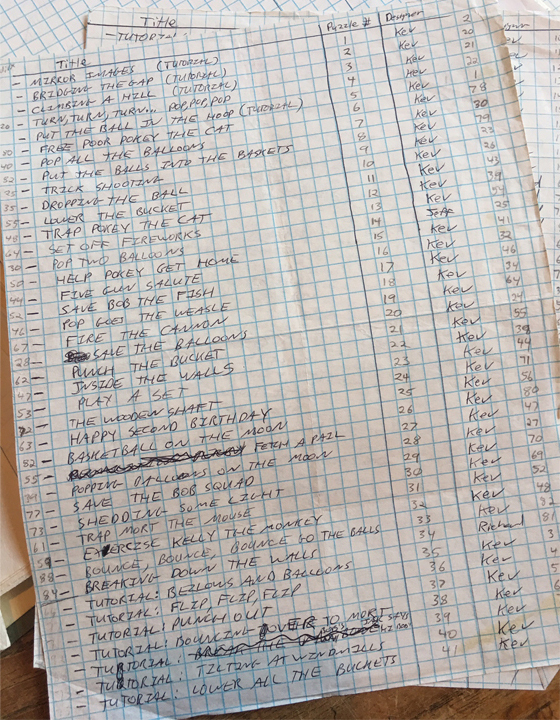 Title
TUTORIAL
Title Puzzle # Designer
- MIRROR IMAGES (TUTORIAL) 1 Kev
- BRIDGING THE GAP (TUTORIAL) 2 Kev
- CLIMBING A HILL (TUTORIAL) 3 Kev
- TURN, TURN, TURN... POP, POP, POP 4 Kev
- PUT THE BALL IN THE HOOP (TUTORIAL) 5 Kev
- FREE POOR POKEY THE CAT 6 Kev
- POP ALL THE BALLOONS 7 Kev
- PUT THE BALLS INTO THE BASKETS 8 Kev
- TRICK SHOOTING 9 Kev
- DROPPING THE BALL 10 Kev
- LOWER THE BUCKET 11 Kev
- TRAP POKEY THE CAT 12 Kev
- SET OFF FIREWORKS 13
- POP TWO BALLOONS 14 Kev
- HELP POKEY GET HOME 15 Kev
- FIVE GUN SALUTE 16 Kev
- SAVE BOB THE FISH 17 Kev
- POP GOES THE WEASLE 18 Kev
- FIRE THE CANNON 19 Kev
- SAVE THE BALLOONS 20 Kev
- PUNCH THE BUCKET 21 Kev
- INSIDE THE WALLS 22 Kev
- PLAY A SET 23 Kev
- THE WOODEN SHAFT 24 Kev
- HAPPY SECOND BIRTHDAY 25 Kev
- BASKETBALL ON THE MOON 26 Kev
- FETCH A PAIL 27 Kev
- POPPING BALLOONS ON THE MOON 28 Kev
- SAVE THE BOB SQUAD 29 Kev
- SHEDDING SOME LIGHT 30 Kev
- TRAP MORT THE MOUSE 31 Kev
- EXERCISE KELLY THE MONKEY 32 Kev
- BOUNCE, BOUNCE, BOUNCE GO THE BALLS 33 Richard
- BREAKING DOWN THE WALLS 34 Kev
- TUTORIAL: BELLOWS AND BALLOONS 35 Kev
- TUTORIAL: FLIP, FLIP, FLIP 36 Kev
- TUTORIAL: PUNCH OUT 37 Kev
- TUTORIAL: BOUNCING OVER TO MORT 38 Kev
- TUTORIAL: 39 Kev
- TUTORIAL: TILTING AT WINDMILLS 40 Kev
- TUTORIAL: LOWER ALL THE BUCKETS 41 Kev